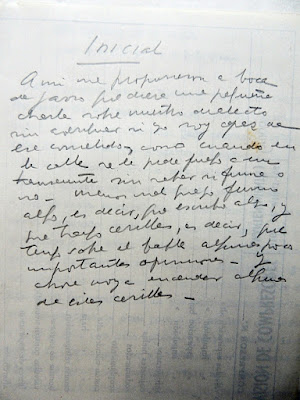 Inicial
A mi me propusieron a boca
de jarro que diese una pequeña
charla sobre nuestro dialecto
sin configurar ni yo soy capaz de
ese cometido y como cuando en
la calle se le pide fuego a un
transeunte sin saber si fuma o
no – menos mal que yo fumo
algo, es decir, que escribo algo, y
que traigo cerillas, es decir, que
tengo sobre el bable algunas pocas
importantes opiniones – y
ahora voy a encender algunas
de estas cerillas –